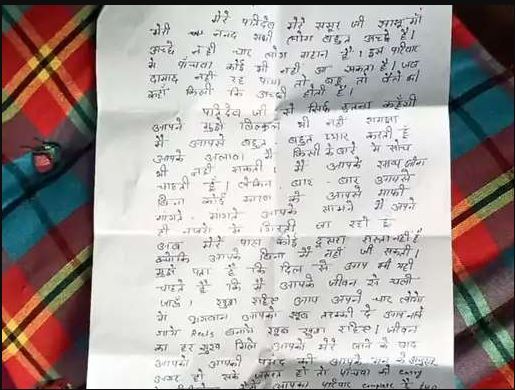 मेरे पतिदेव मेरे ससुर जी सासु माँ
मेरी ननद सभी लोग बहुत अच्छे हैं।
अच्छे नहीं चार लोग महान हैं। इस परिवार
मे पाँचवा कोई भी नहीं आ सकता है। जब
दामाद नहीं रह पाया तो बहू तो वैसे भी
कहाँ किसी कि अच्छी होती है।
पतिदेव जी से सिर्फ इतना कहूँगी
आपने मुझे बिल्कुल भी नहीं समझा
मैं आपसे बहुत बहुत प्यार करती हूँ
आपके अलावा मैं किसी के बारे मे सोच
भी नहीं सकती। मैं आपके साथ जीना
चाहती हूँ। लेकिन बार - बार आपसे
बिना कोई कारण के आपसे माफी
मांगते - मांगते आपके सामने मैं अपने
ही नजरो के गिरती जा रही हूँ
अब मेरे पास कोई दूसरा रास्ता नहीं है
क्योंकि आपके बिना मैं नहीं जी सकती।
मुझे पता है कि दिल से आप भी यही
चाहते हैं कि मैं आपके जीवन से चली
जाऊँ। खुश रहिए आप अपनी चार लोगो
मे भगवान आपको खूब तरक्की दे आप
Reels बनाये खूब खुश रहिए। जीवन
का हर सुख मिले आपको मेरे जाने के बाद
आपको आपकी पसंद की आपके मन के अनुसार
अगर हो सके तो पाँचवा की
आपका परिवार